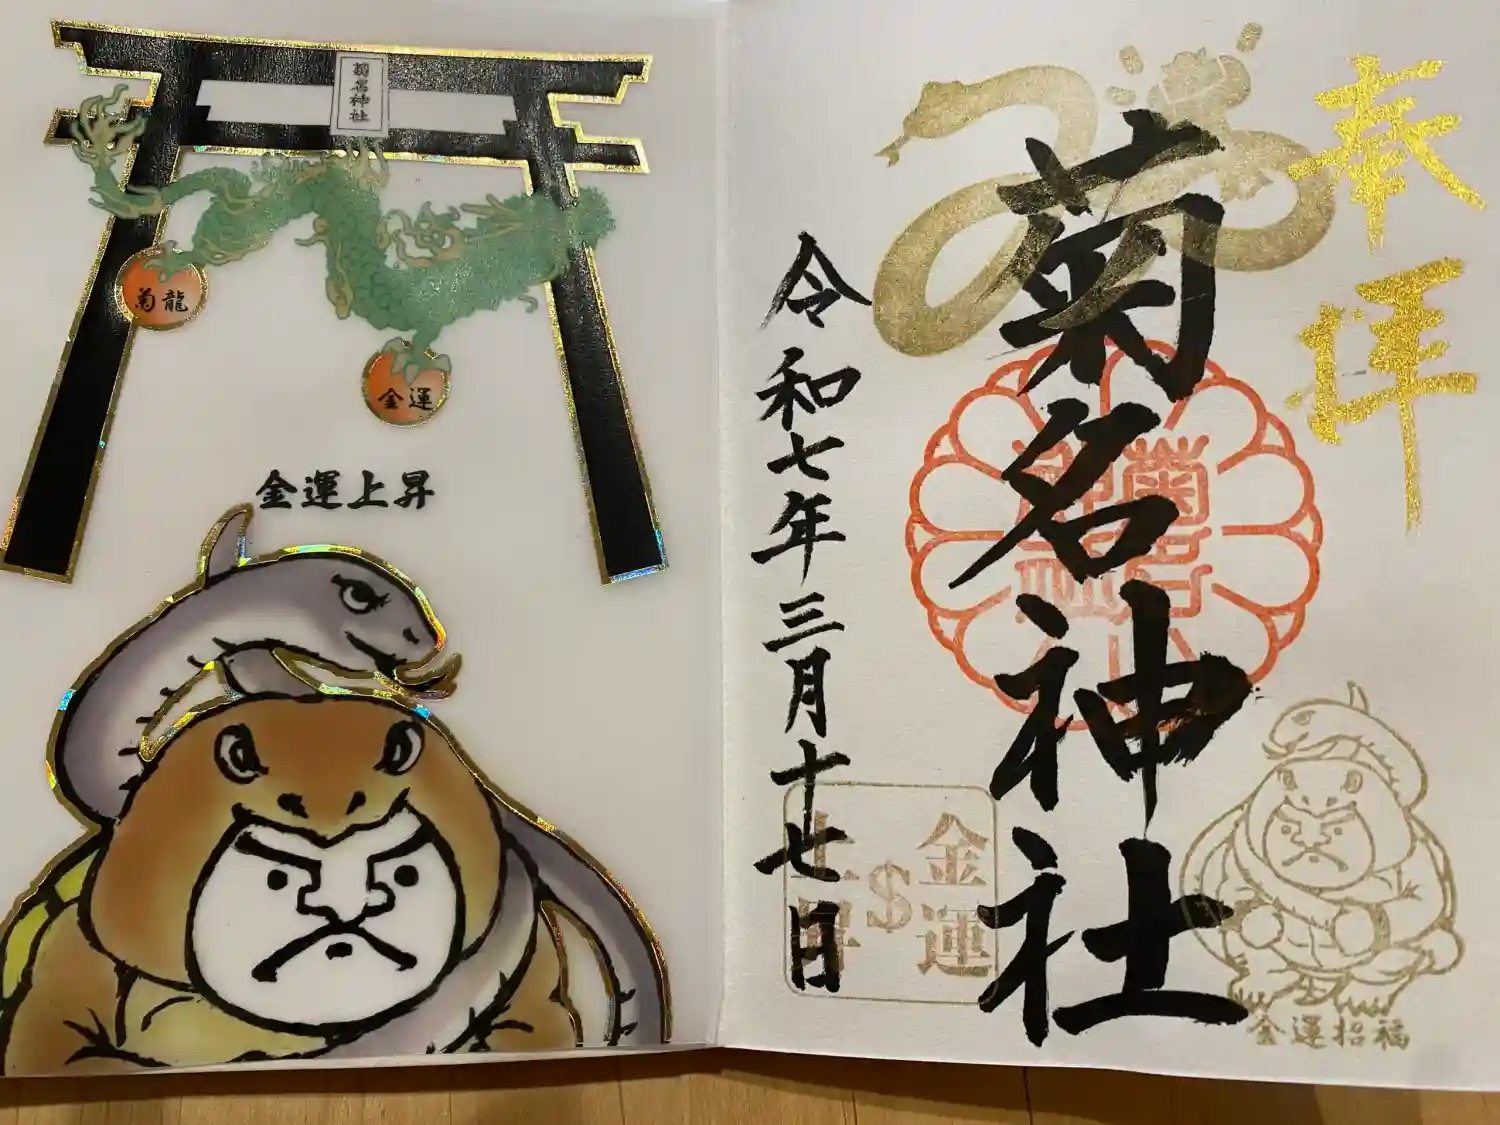 奉拝
菊名神社
菊名神社
令和七年三月十七日
金運
上昇
$
金運招福
菊名神社
菊龍
金運
金運上昇